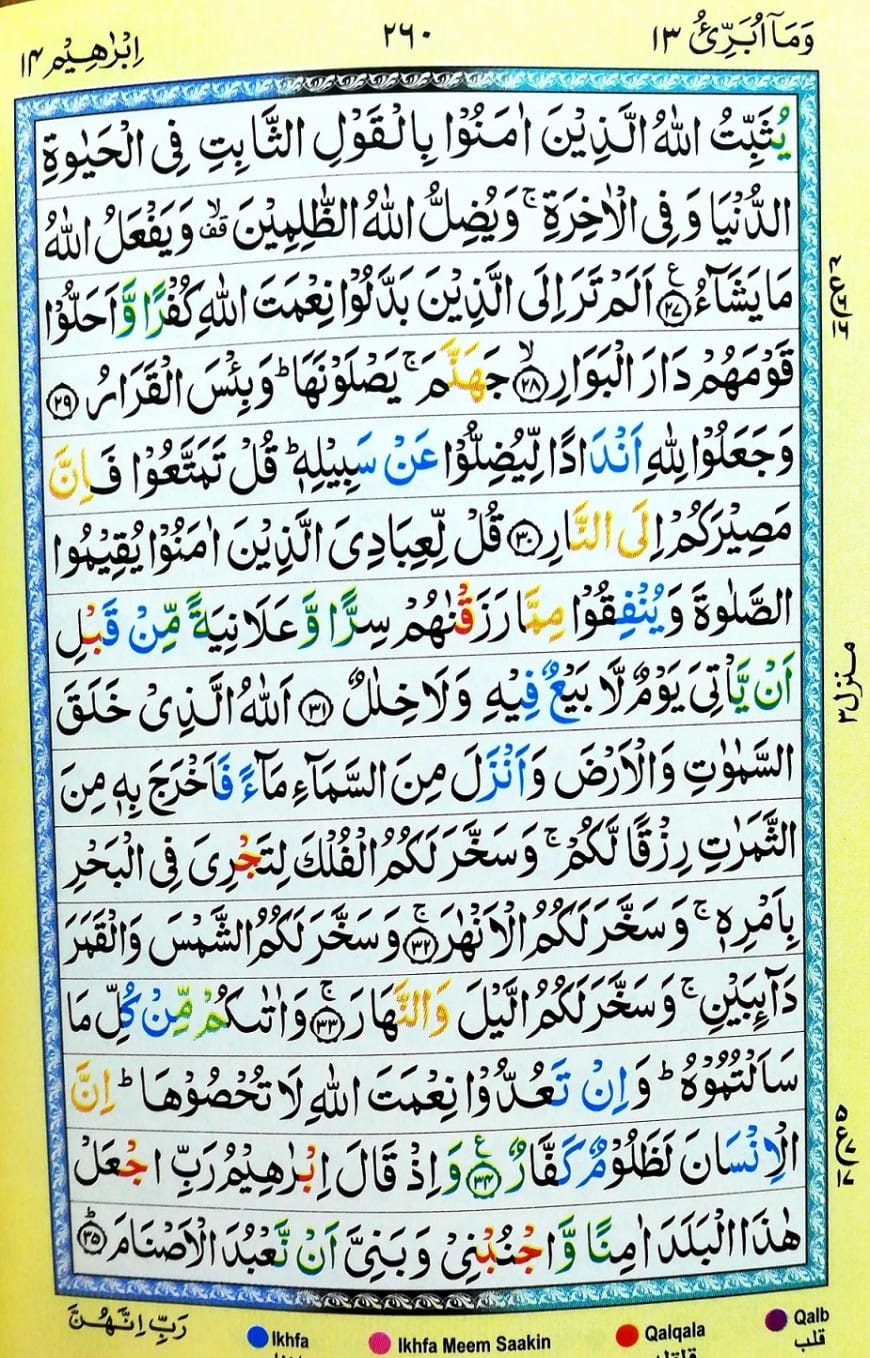 وَمَآ اُبَرِّئُ ١٣
٢٦٠
اِبْرٰهِيْم ١٤
يُثَبِّتُ اللّٰهُ الَّذِيْنَ اٰمَنُوْا بِالْقَوْلِ الثَّابِتِ فِى الْحَيٰوةِ
الدُّنْيَا وَفِى الْاٰخِرَةِ ۚ وَيُضِلُّ اللّٰهُ الظّٰلِمِيْنَ ۙ قف وَيَفْعَلُ اللّٰهُ
مَا يَشَآءُ ع ۝٢٧ اَلَمْ تَرَ اِلَى الَّذِيْنَ بَدَّلُوْا نِعْمَتَ اللّٰهِ كُفْرًا وَّ اَحَلُّوْا
قَوْمَهُمْ دَارَ الْبَوَارِ ۙ ۝٢٨ جَهَنَّمَ ۚ يَصْلَوْنَهَا ؕ وَبِئْسَ الْقَرَارُ ۝٢٩
وَجَعَلُوْا لِلّٰهِ اَنْدَادًا لِّيُضِلُّوْا عَنْ سَبِيْلِهٖ ؕ قُلْ تَمَتَّعُوْا فَاِنَّ
مَصِيْرَكُمْ اِلَى النَّارِ ۝٣٠ قُلْ لِّعِبَادِىَ الَّذِيْنَ اٰمَنُوْا يُقِيْمُوا
الصَّلٰوةَ وَيُنْفِقُوْا مِمَّا رَزَقْنٰهُمْ سِرًّا وَّ عَلَانِيَةً مِّنْ قَبْلِ
اَنْ يَّاْتِىَ يَوْمٌ لَّا بَيْعٌ فِيْهِ وَلَا خِلٰلٌ ۝٣١ اَللّٰهُ الَّذِىْ خَلَقَ
السَّمٰوٰتِ وَالْاَرْضَ وَاَنْزَلَ مِنَ السَّمَآءِ مَآءً فَاَخْرَجَ بِهٖ مِنَ
الثَّمَرٰتِ رِزْقًا لَّكُمْ ۚ وَسَخَّرَ لَكُمُ الْفُلْكَ لِتَجْرِىَ فِى الْبَحْرِ
بِاَمْرِهٖ ۚ وَسَخَّرَ لَكُمُ الْاَنْهٰرَ ۚ ۝٣٢ وَسَخَّرَ لَكُمُ الشَّمْسَ وَالْقَمَرَ
دَآئِبَيْنِ ۚ وَسَخَّرَ لَكُمُ الَّيْلَ وَالنَّهَارَ ۚ ۝٣٣ وَاٰتٰىكُمْ مِّنْ كُلِّ مَا
سَاَلْتُمُوْهُ ؕ وَاِنْ تَعُدُّوْا نِعْمَتَ اللّٰهِ لَا تُحْصُوْهَا ؕ اِنَّ
الْاِنْسَانَ لَظَلُوْمٌ كَفَّارٌ ع ۝٣٤ وَاِذْ قَالَ اِبْرٰهِيْمُ رَبِّ اجْعَلْ
هٰذَا الْبَلَدَ اٰمِنًا وَّاجْنُبْنِىْ وَبَنِىَّ اَنْ نَّعْبُدَ الْاَصْنَامَ ؕ ۝٣٥
منزل ٣
رَبِّ اِنَّهُنَّ
Ikhfa
Ikhfa Meem Saakin
Qalqala
Qalb
قلب